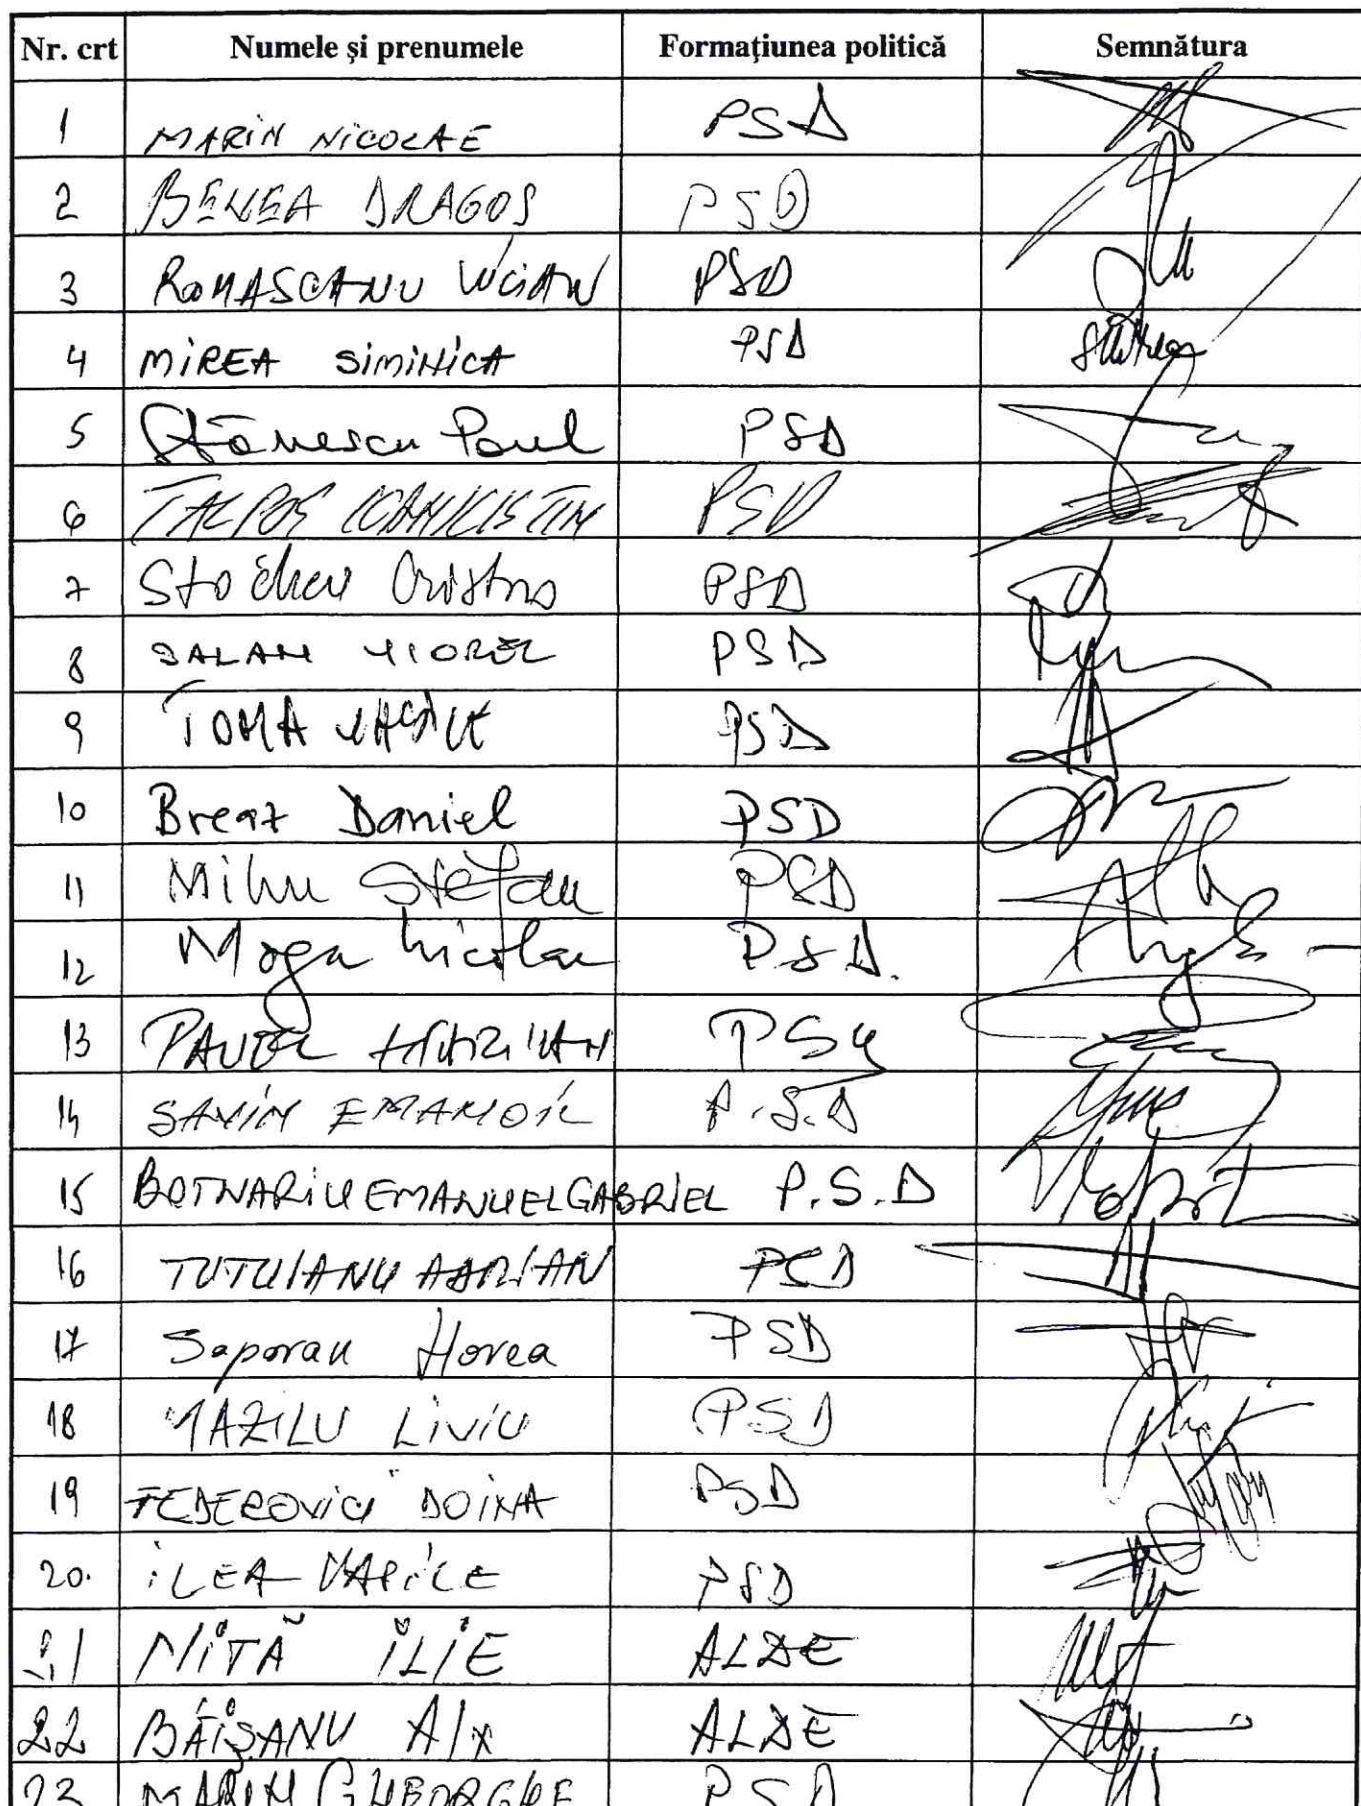 Nr. crt Numele și prenumele Formațiunea politică Semnătura
1 MARIN NICOLAE PSD
2 BENEA DRAGOS PSD
3 ROMASCANU LUCIAN PSD
4 MIREA SIMINICA PSD
5 Stănescu Paul PSD
6 TALPOS IOAN IUSTIN PSD
7 PSD
8 SALAN VIOREL PSD
9 TOMA VASILE PSD
10 Breaz Daniel PSD
11 Mihu Ștefan PSD
12 Moga Nicolae P.S.D.
13 PAVEL MARIAN PSD
14 SAVIN EMANOIL P.S.D
15 BOTNARIU EMANUEL GABRIEL P.S.D
16 TUTUIANU ADRIAN PSD
17 Soporan Horea PSD
18 MAZILU LIVIU PSD
19 FEDEROVICI DOINA PSD
20. ILEA VASILE PSD
21 NIȚĂ ILIE ALDE
22 BĂIȘANU Alx ALDE
23 MARIN GHEORGHE PSD